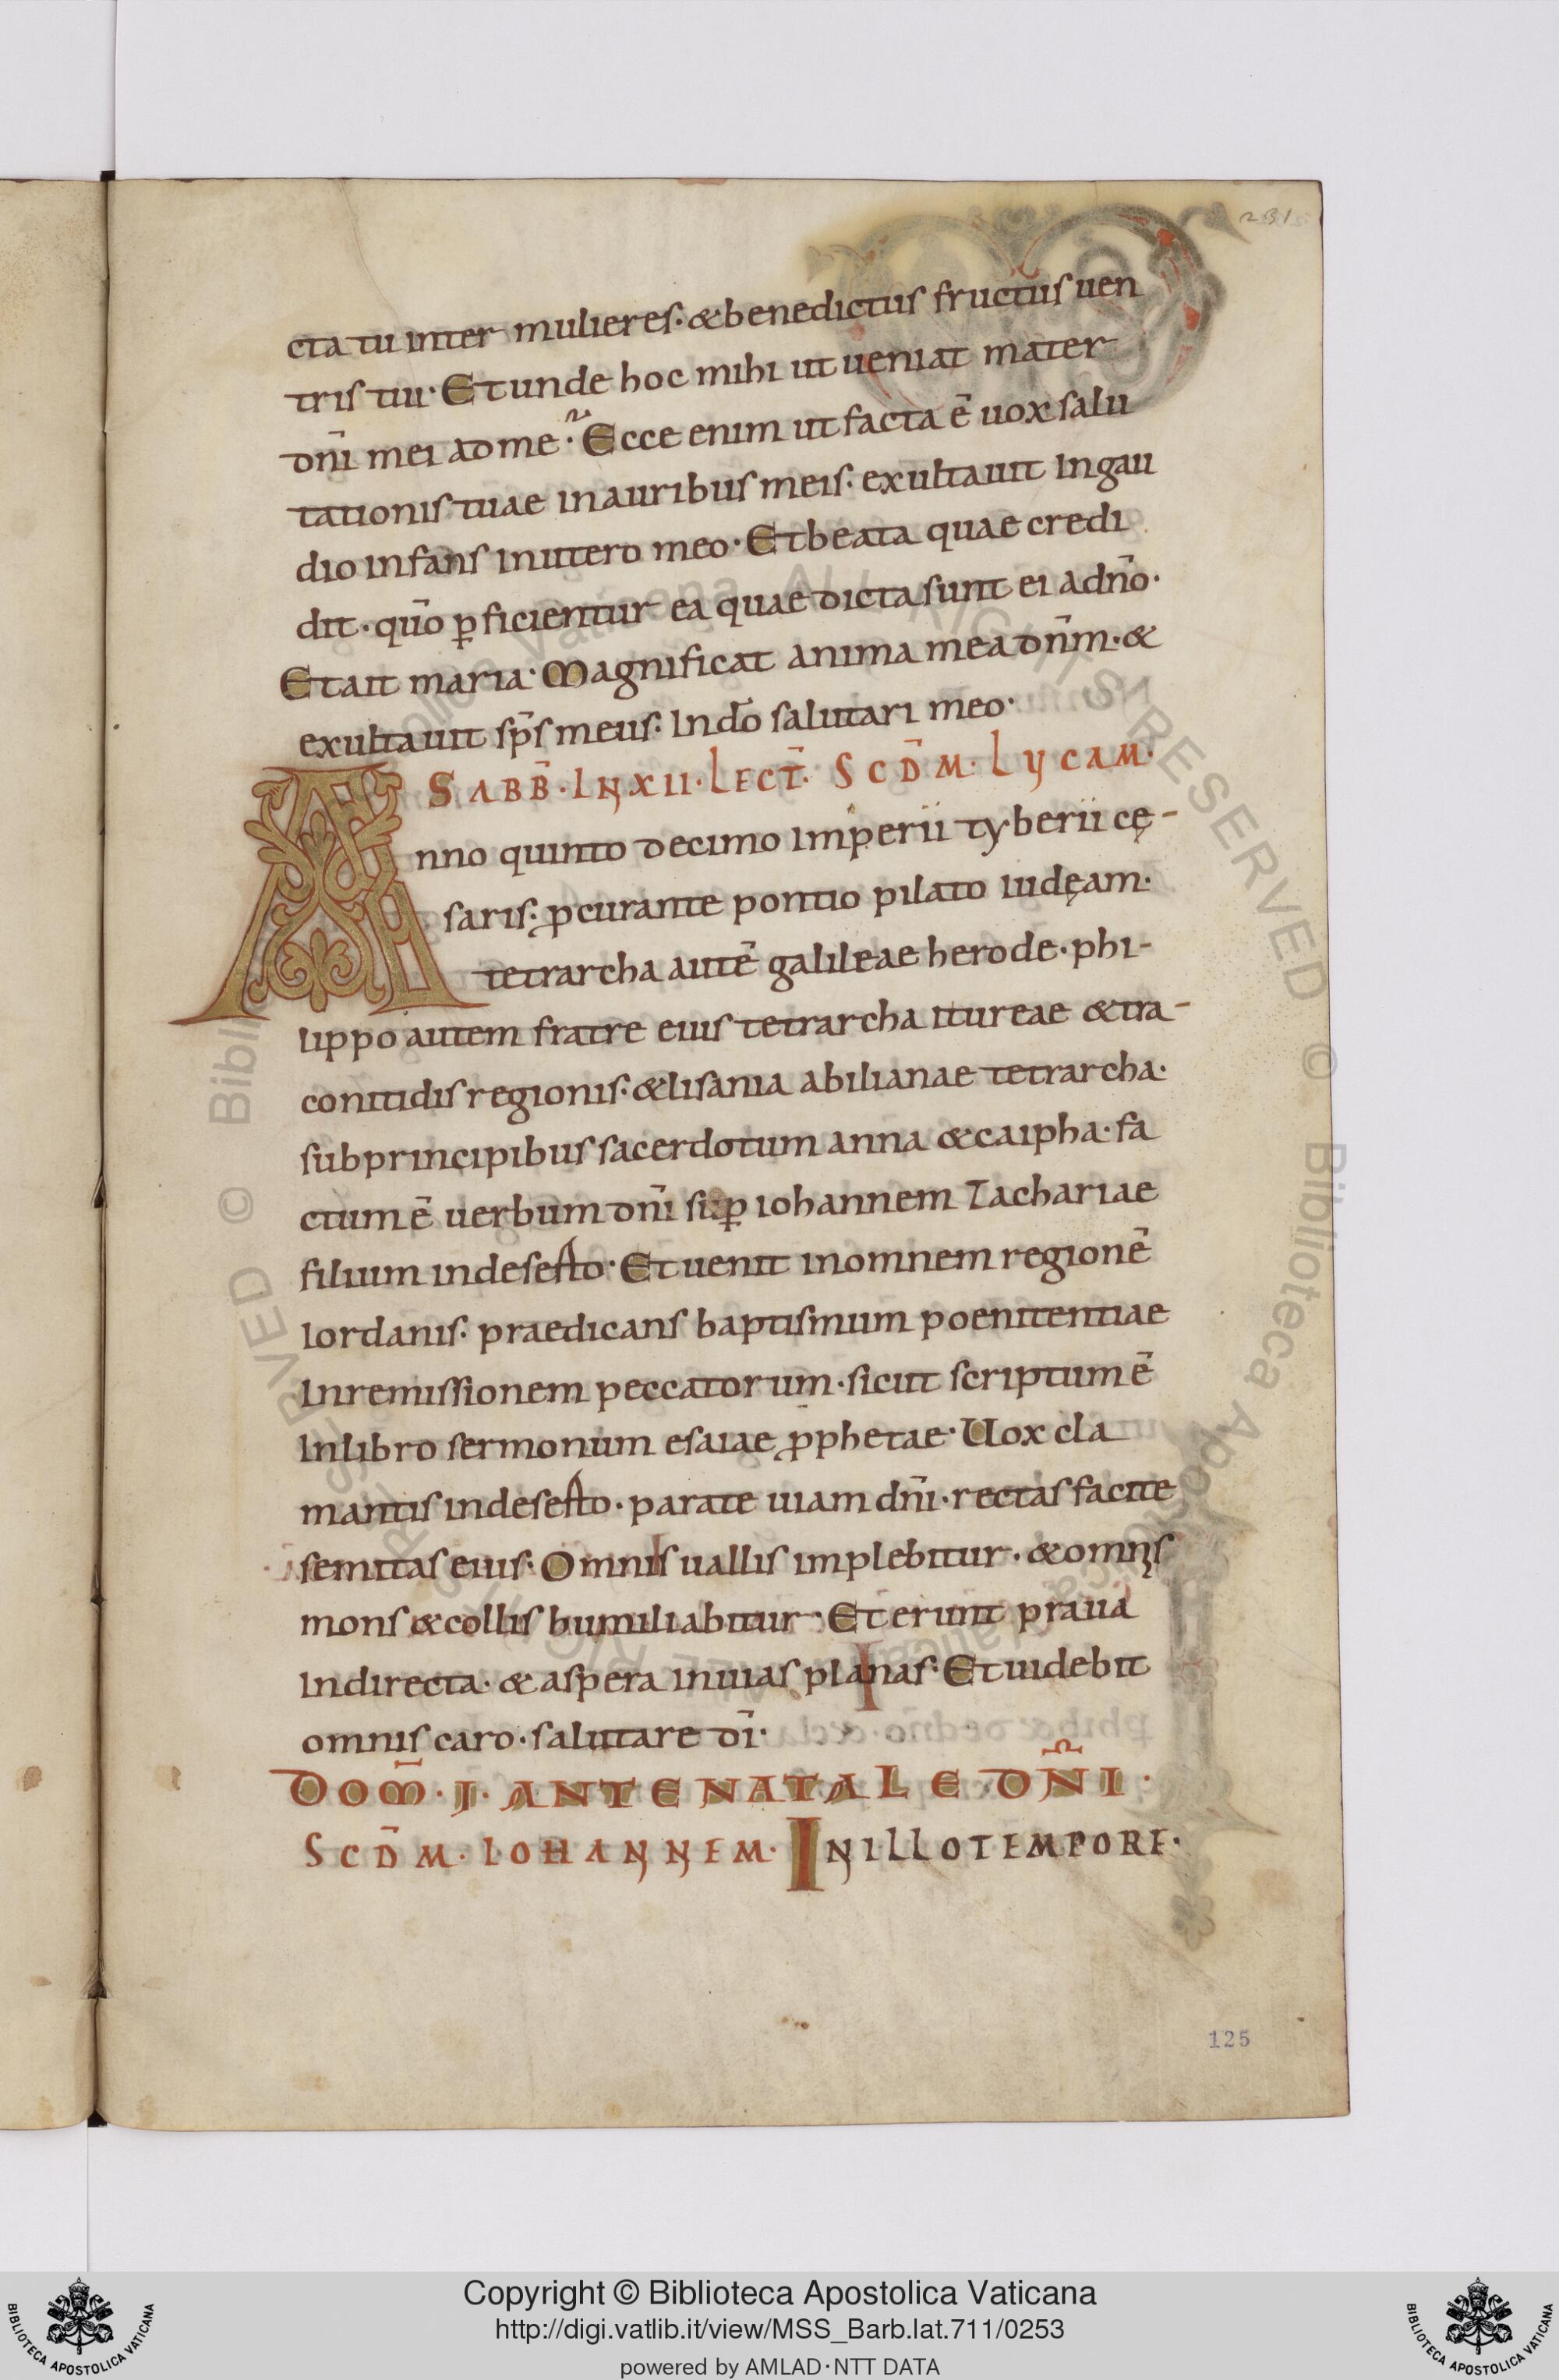 231
cta tu inter mulieres· & benedictus fructus uen
tris tui· Et unde hoc mihi ut ueniat mater
dn̄i mei ad me· Ecce enim ut facta ē uox salu
tationis tuae in auribus meis· exultauit in gau
dio infans in utero meo· Et beata quae credi
dit· quō ꝑficientur ea quae dicta sunt ei a dn̄o·
Et ait maria· Magnificat anima mea dn̄m· &
exultauit sp̄s meus· In dō salutari meo·
SABB̄· IN XII· LECT̄· SCD̄M· LYCAM·
Anno quinto decimo imperii tyberii cę-
saris· ꝓcurante pontio pilato iudęam·
tetrarcha autē galileae herode· phi-
lippo autem fratre eius tetrarcha itureae & tra-
conitidis regionis· & lisania abilianae tetrarcha·
sub principibus sacerdotum anna & caipha· fa
ctum ē uerbum dn̄i suꝑ iohannem Zachariae
filium in deserto· Et uenit in omnem regionē
Iordanis· praedicans baptismum poenitentiae
In remissionem peccatorum· sicut scriptum ē
In libro sermonum esaiae ꝓphetae· Uox cla
mantis in deserto· parate uiam dn̄i· rectas facite
semitas eius· Omnis uallis implebitur· & omnis
mons & collis humiliabitur· Et erunt praua
In directa· & aspera in uias planas· Et uidebit
omnis caro· salutare dī·
DOM̄· I· ANTE NATALE DN̄I·
SCD̄M· IOHANNEM· IN ILLO TEMPORE·
125
Copyright © Biblioteca Apostolica Vaticana
http://digi.vatlib.it/view/MSS_Barb.lat.711/0253
powered by AMLAD·NTT DATA
BIBLIOTECA APOSTOLICA VATICANA
BIBLIOTECA APOSTOLICA VATICANA